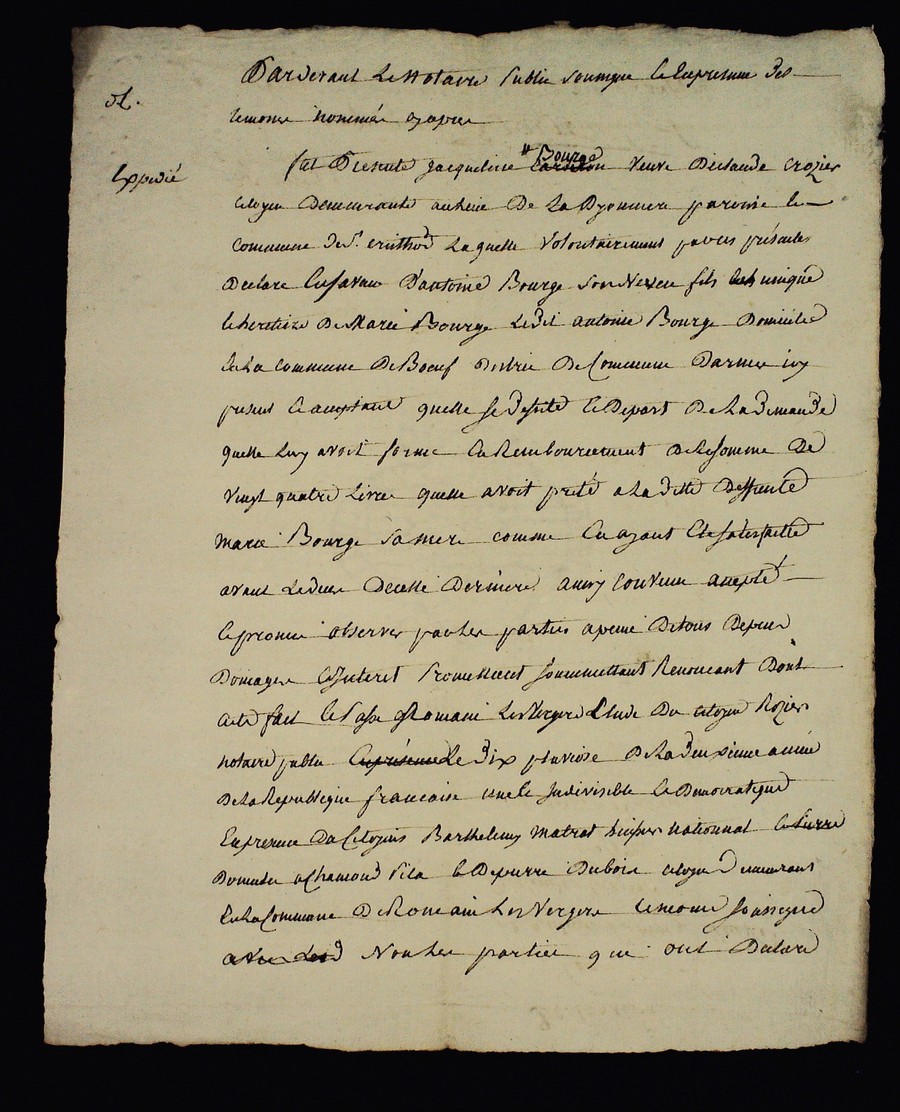 Pardevant Le Notaire Public soussigne Et En presence des
temoins nommés Cy apres
51.
Expedié
fut Presente Jacqueline Bourge veuve De Claude Crozier
Citoyenne Demeurante au lieu De La paroisse Et
Commune De St. Laquelle volontairement par ces présentes
Declare En faveur D'antoine Bourge son Neveu fils unique
Et heritier De Marie Bourge Ledit antoine Bourge Domicilié
En La Commune De Boeuf District De Commune D'armes icy
present Et acceptant quelle se desiste Et Depart De La Demande
quelle Luy avoit formé En Remboursement De La somme De
vingt quatre Livres quelle avoit preté a La ditte Deffunte
Marie Bourge sa mere comme En ayant Eté satisfaitte
avant Le deces De cette Derniere ainsy convenu accepté
Et promis observer par Les parties a peine De tous Depens
Domages Et Interet Promettant soummettant Renonçant Dont
acte fait Et Passé a Romain Les Vergers Etude Du Citoyen Rozier
notaire public En présence Le dix pluviose De La deuxieme année
De La Republique francaise une Et Indivisible Et Democratique
En presence Du Citoyens Barthelemy Matrat huissier national
Domicilié a Chamond Et De pierre Dubois Citoyen Demeurant
En La Commune De Romain Les Vergers temoins soussignés
avec Non Les parties qui ont Declaré